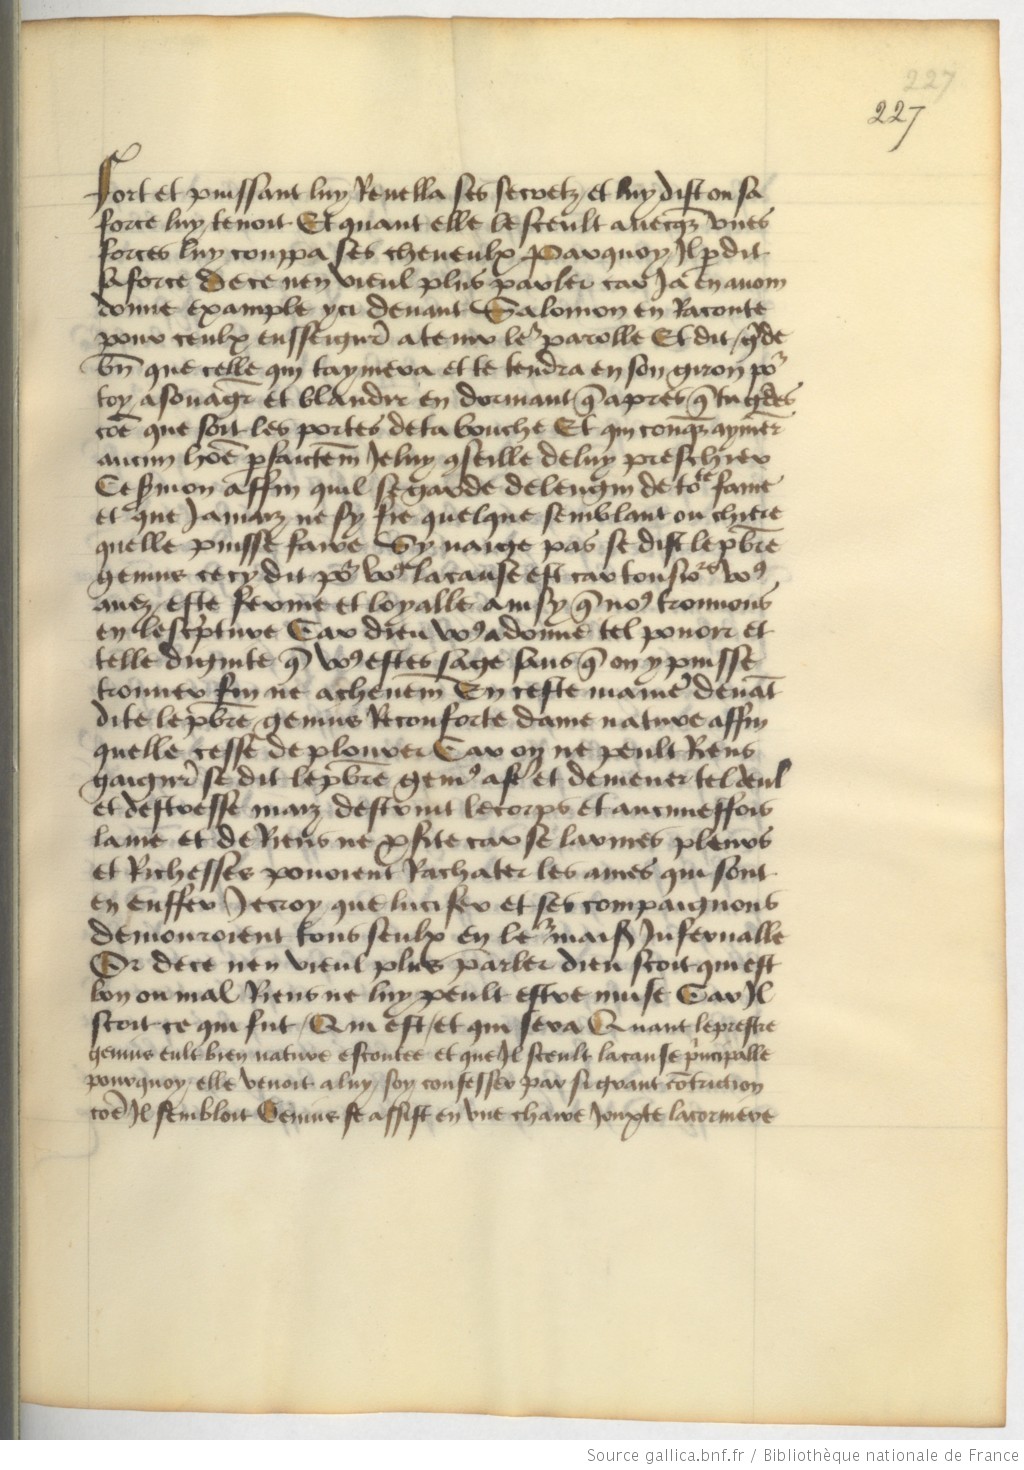 227
227
Fort et puissant luy Revella ses secretz et luy dist ou sa
force luy tenoit Et quant elle le sceult avecqz unes
forces luy couppa ses cheveulx Parquoy Il pdit
sa force De ce nen vieul plus parler car Ja en avom
donne example yci devant Salomon en Raconte
pour ceulx ensseigner a tenir le parolle Et dit gde
bn que celle qui taymera et te tendra en son giron po
toy asouagr et blandir en dormant q apres q tu gdes
coe que soit les portes de ta bouche Et qui conqz aymer
aucun hoe pfaictem Je luy gseille de luy preschier
Ce smon affin quil se garde de lengin de tote fame
et que Jamaiz ne sy fie quelque semblant ou chiere
quelle puisse faire Sy naige pas se dist le pbre
genius cecy dit po vo la cause est car tousiors vo
avez este ferme et loyalle ainsy q no trouvons
en lescpture Car dieu vo a donne tel povoir et
telle dignite q vo estes sage sans q on y puisse
trouver fin ne achevem En ceste manie devat
dite le pbre genius Reconforte dame nature affin
quelle cesse de plourer Car on ne peult Riens
gaigner se dit le pbre geni afe et demener tel deul
et destresse maiz destruit le corps et aucuneffois
lame et de Riens ne pfite car se larmes pleurs
et Richesses povoient Rachater les ames qui sont
en enffer Je croy que lucifer et ses compaignons
demouroient tous seulx en le mais Infernalle
Or de ce nen vieul plus parler dieu scoit qui est
bon ou mal Riens ne luy peult estre muse Car Il
scoit ce qui fut / Qui est / et qui sera Quant le prestre
genius eult bien nature escoutee et que Il sceult la cause principalle
pourquoy elle venoit a luy soy confesser par si grant cotriction
coe Il sembloit Genius se assist en une chaire Jouxte la corniere
Source gallica.bnf.fr / Bibliothèque nationale de France